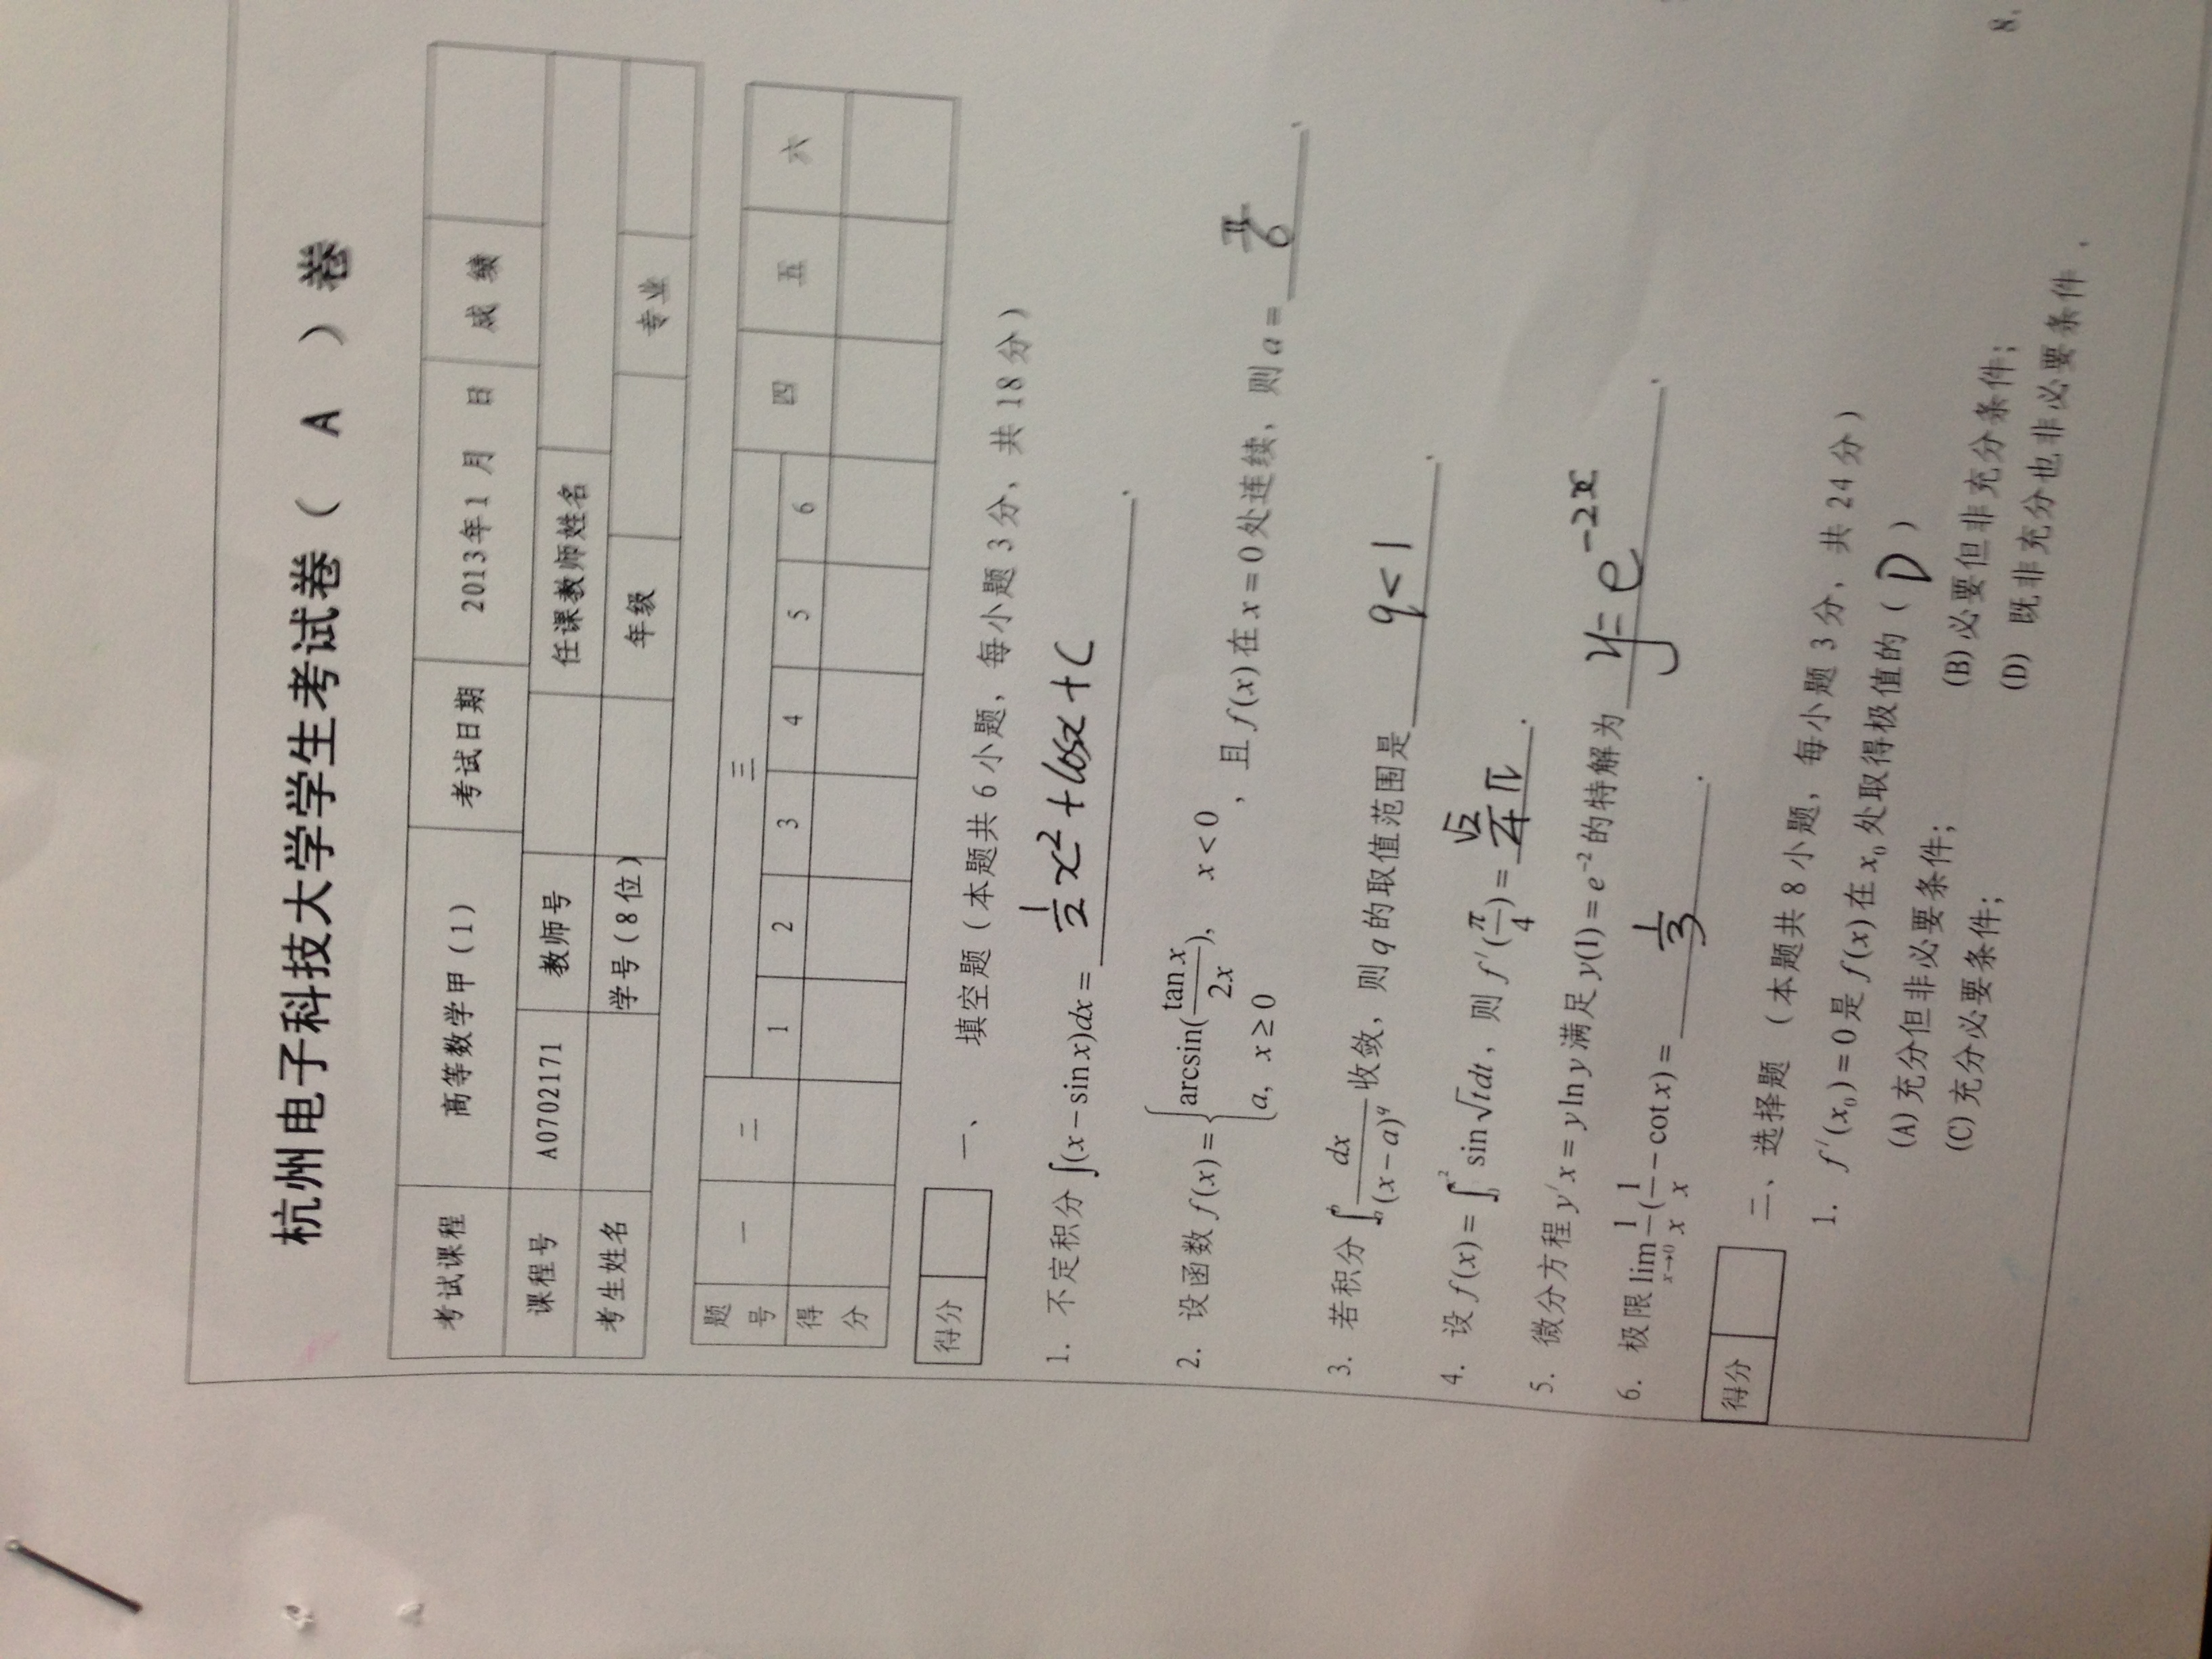 杭州电子科技大学学生考试卷（ A ）卷
考试课程 高等数学甲（1） 考试日期 2013年1 月 日 成 绩
课程号 A0702171 教师号 任课教师姓名
考生姓名 学号（8位） 年级 专业
题号 一 二 三 四 五 六
1 2 3 4 5 6
得分
得分
一、 填空题（本题共 6 小题，每小题 3 分，共 18 分）
1. 不定积分 ∫(x−sin x)dx = 1/2 x² + cosx + C .
2. 设函数 f(x) = { arcsin(tan x / 2x), x < 0 ; a, x ≥ 0 ，且 f(x) 在 x = 0 处连续，则 a = π/6 .
3. 若积分 ∫_a^b dx/(x−a)^q 收敛，则 q 的取值范围是 q < 1 .
4. 设 f(x) = ∫_0^{x²} sin √t dt，则 f′(π/4) = √2/4 π .
5. 微分方程 y′x = y ln y 满足 y(1) = e⁻² 的特解为 y = e^{−2x} .
6. 极限 lim_{x→0} 1/x (1/x − cot x) = 1/3 .
得分
二、选择题 （本题共 8 小题，每小题 3 分，共 24 分）
1. f′(x₀) = 0 是 f(x) 在 x₀ 处取得极值的（ D ）
(A) 充分但非必要条件； (B) 必要但非充分条件；
(C) 充分必要条件； (D) 既非充分也非必要条件 .
8.